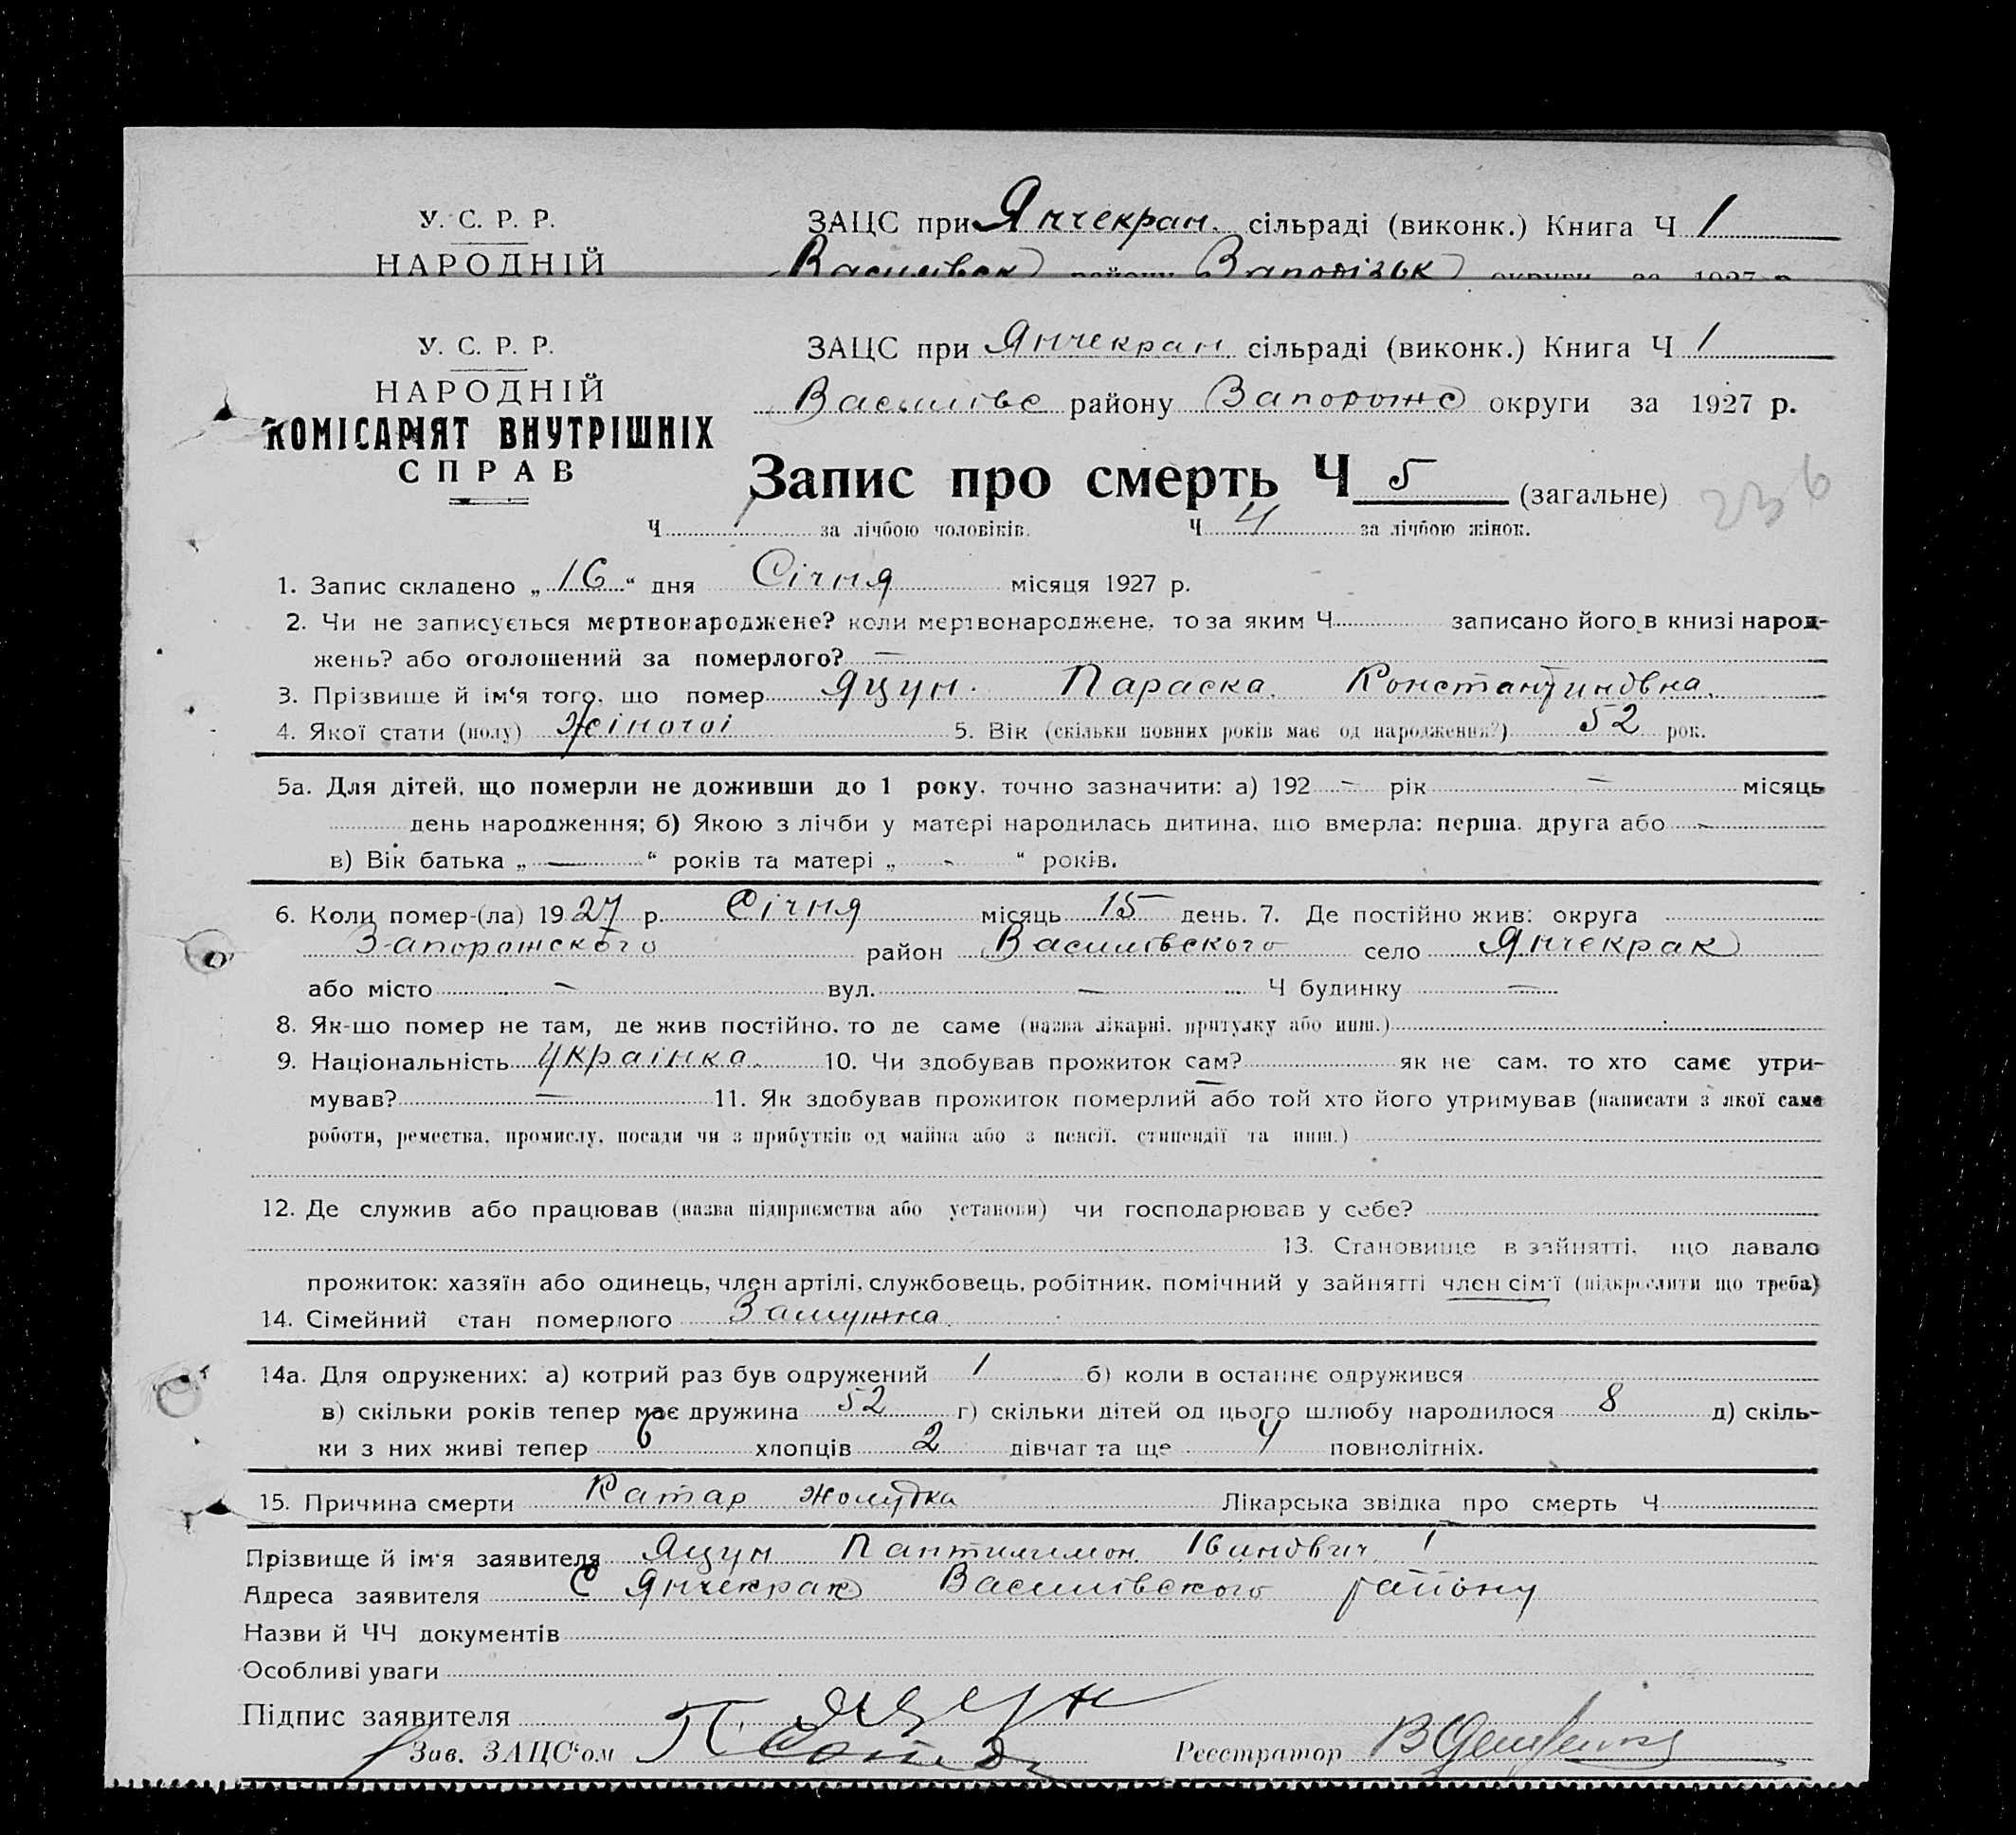 У. С. Р. Р.
ЗАЦС при Янчекрак. сільраді (виконк.) Книга Ч 1
НАРОДНІЙ
Василівськ району Запорізьк округи за 1927 р.
У. С. Р. Р.
ЗАЦС при Янчекрак сільраді (виконк.) Книга Ч 1
НАРОДНІЙ
Василівс району Запорожс округи за 1927 р.
КОМІСАРІЯТ ВНУТРІШНІХ
СПРАВ
Запис про смерть Ч 5 (загальне)
236
Ч / за лічбою чоловіків. Ч 4 за лічбою жінок.
1. Запис складено „16“ дня Січня місяця 1927 р.
2. Чи не записується мертвонароджене? коли мертвонароджене, то за яким Ч записано його в книзі народ-
жень? або оголошений за померлого? —
3. Прізвище й ім‘я того, що помер Яцун. Параска. Константиновна.
4. Якої стати (полу) жіночоі 5. Вік (скільки повних років має од народження?) 52 рок.
5а. Для дітей, що померли не доживши до 1 року, точно зазначити: а) 192 – рік – місяць
день народження; б) Якою з лічби у матері народилась дитина, що вмерла: перша, друга або –
в) Вік батька „ — “ років та матері „ - “ років.
6. Коли помер-(ла) 1927 р. Січня місяць 15 день. 7. Де постійно жив: округа
Запорожского район Василівского село Янчекрак
або місто – вул. — Ч будинку —
8. Як-що помер не там, де жив постійно, то де саме (назва лікарні, притулку або инш.)
9. Національність Украінка. 10. Чи здобував прожиток сам? як не сам, то хто саме утри-
мував? — 11. Як здобував прожиток померлий або той хто його утримував (написати з якої саме
роботи, ремества, промислу, посади чи з прибутків од майна або з пенсії, стипендії та инш.)
12. Де служив або працював (назва підприємства або установи) чи господарював у себе?
13. Становище в зайнятті, що давало
прожиток: хазяїн або одинець, член артілі, службовець, робітник, помічний у зайнятті член сім'ї (підкреслити що треба)
14. Сімейний стан померлого Замужна.
14а. Для одружених: а) котрий раз був одружений 1 б) коли в останнє одружився
в) скільки років тепер має дружина 52 г) скільки дітей од цього шлюбу народилося 8 д) скіль-
ки з них живі тепер 6 хлопців 2 дівчат та ще 4 повнолітніх.
15. Причина смерти Катар жолудка Лікарська звідка про смерть Ч
Прізвище й ім‘я заявителя Яцун Пантилимон Івинович
Адреса заявителя С Янчекрак Василівского району
Назви й ЧЧ документів
Особливі уваги
Підпис заявителя П. Яцун
Зав. ЗАЦС‘ом
Реєстратор